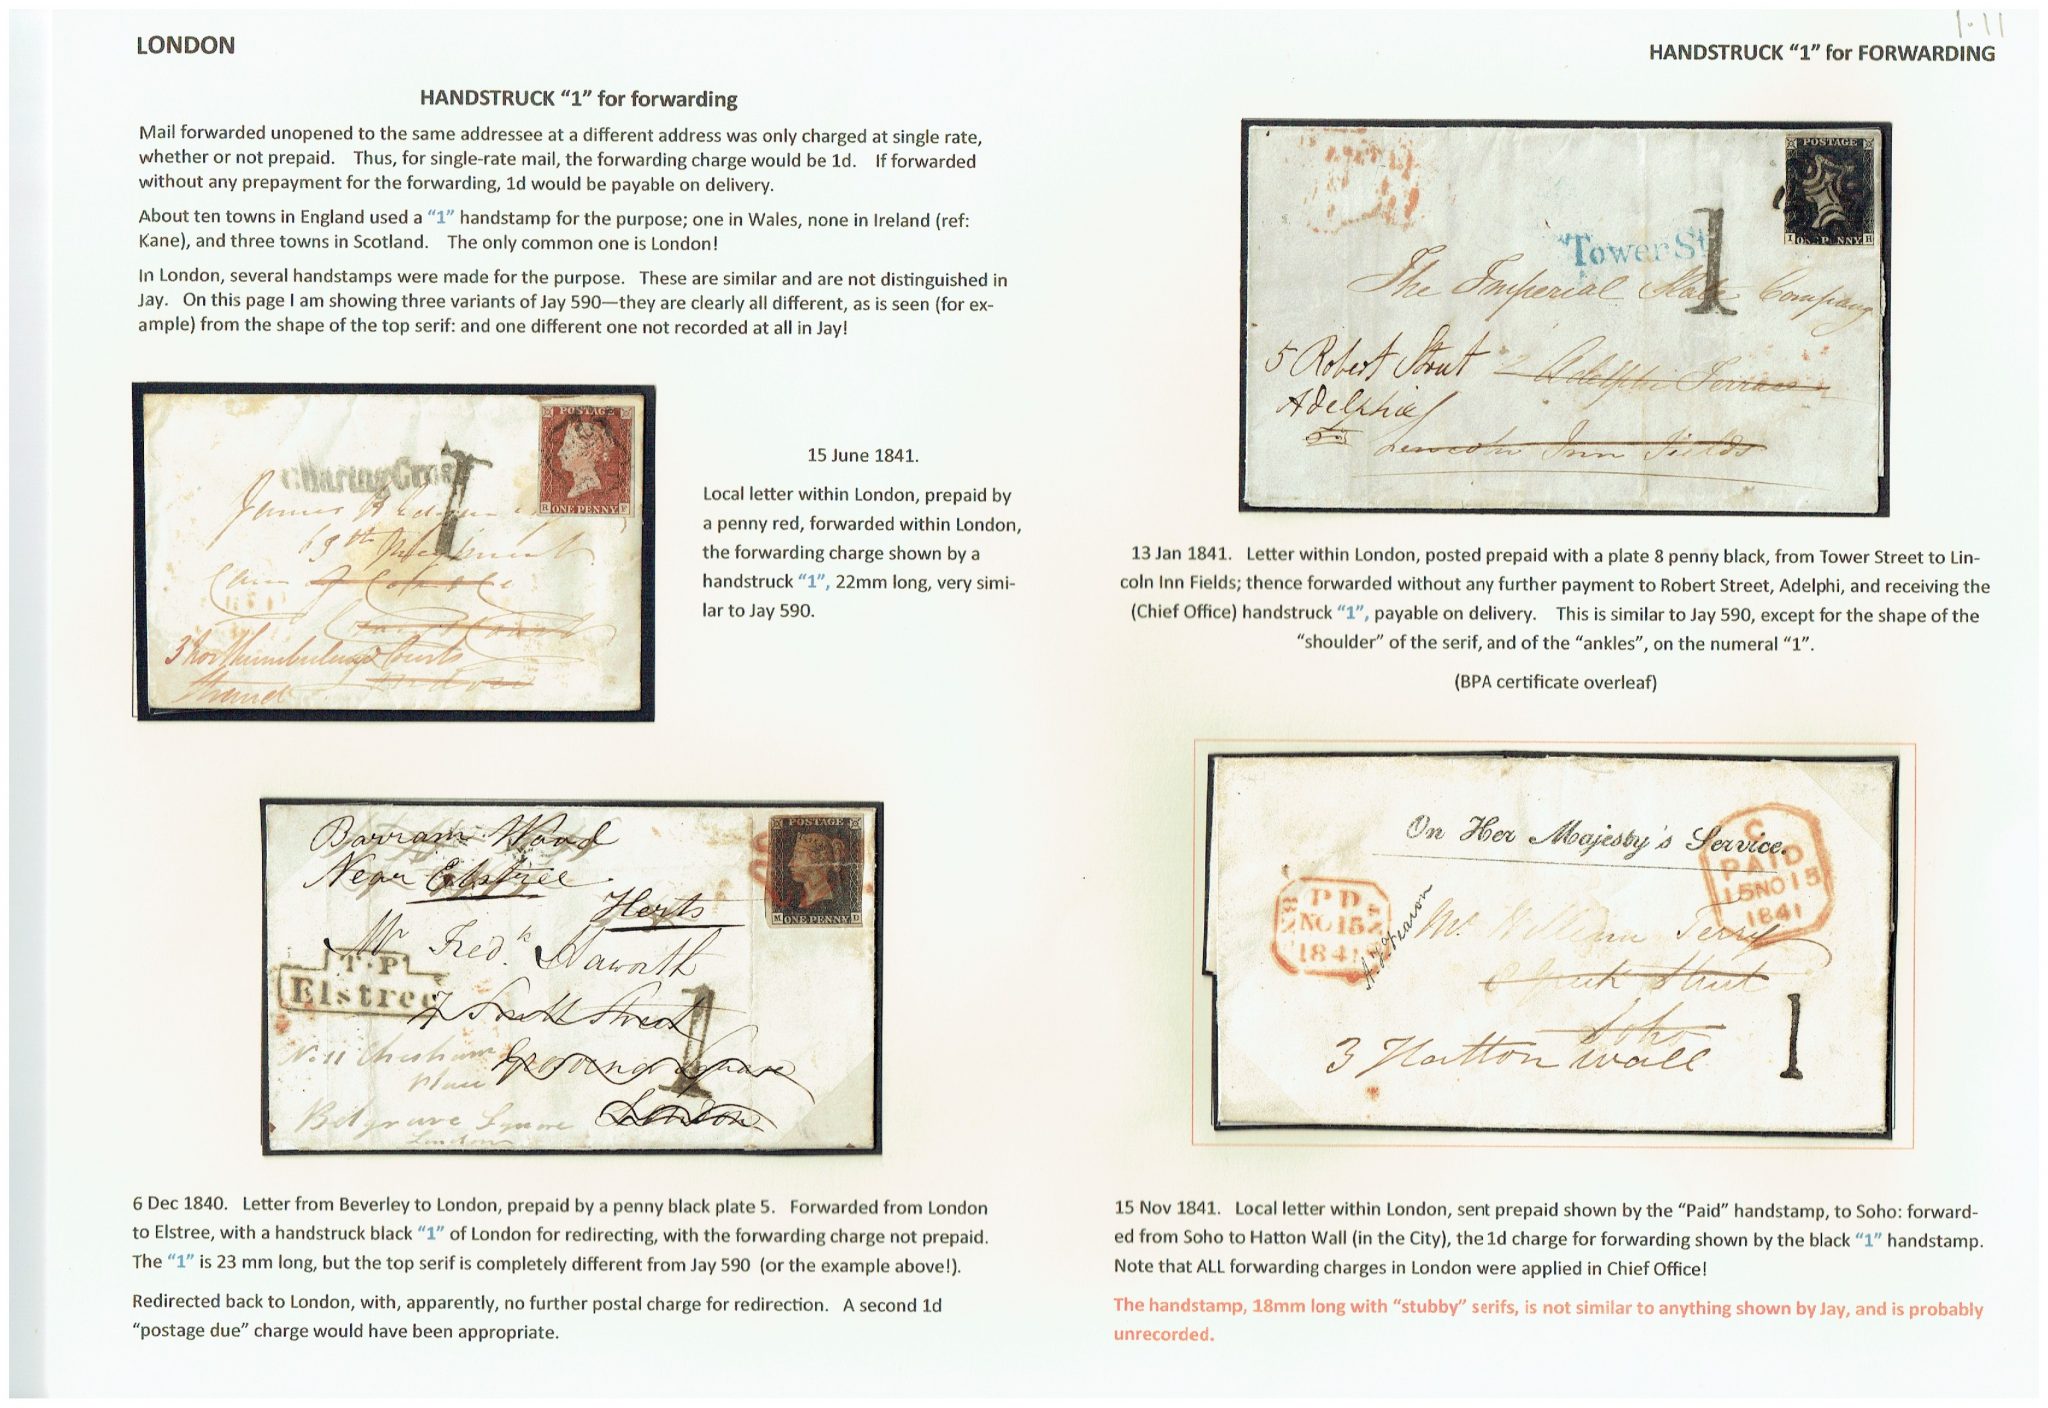 1.11
LONDON
HANDSTRUCK “1” for FORWARDING
HANDSTRUCK “1” for forwarding
Mail forwarded unopened to the same addressee at a different address was only charged at single rate,
whether or not prepaid. Thus, for single-rate mail, the forwarding charge would be 1d. If forwarded
without any prepayment for the forwarding, 1d would be payable on delivery.
About ten towns in England used a “1” handstamp for the purpose; one in Wales, none in Ireland (ref:
Kane), and three towns in Scotland. The only common one is London!
In London, several handstamps were made for the purpose. These are similar and are not distinguished in
Jay. On this page I am showing three variants of Jay 590—they are clearly all different, as is seen (for ex-
ample) from the shape of the top serif: and one different one not recorded at all in Jay!
POSTAGE
R ONE PENNY F
Charing Cross
1
James
69th
3 Northumberland Courts
Strand
15 June 1841.
Local letter within London, prepaid by
a penny red, forwarded within London,
the forwarding charge shown by a
handstruck “1”, 22mm long, very simi-
lar to Jay 590.
Barram Wood
Near Elstree
Herts
POSTAGE
M ONE PENNY D
Mr Fredk Haworth
T.P
Elstree
7 South Street
1
No 11 Chesham
Place
Grosvenor Square
Belgrave Square
London
London
6 Dec 1840. Letter from Beverley to London, prepaid by a penny black plate 5. Forwarded from London
to Elstree, with a handstruck black “1” of London for redirecting, with the forwarding charge not prepaid.
The “1” is 23 mm long, but the top serif is completely different from Jay 590 (or the example above!).
Redirected back to London, with, apparently, no further postal charge for redirection. A second 1d
“postage due” charge would have been appropriate.
POSTAGE
I ONE PENNY H
Tower St
1
The Imperial Slate Company
5 Robert Street
2 Adelphi Terrace
Adelphi
Lincoln Inn Fields
13 Jan 1841. Letter within London, posted prepaid with a plate 8 penny black, from Tower Street to Lin-
coln Inn Fields; thence forwarded without any further payment to Robert Street, Adelphi, and receiving the
(Chief Office) handstruck “1”, payable on delivery. This is similar to Jay 590, except for the shape of the
“shoulder” of the serif, and of the “ankles”, on the numeral “1”.
(BPA certificate overleaf)
On Her Majesty's Service.
C
PAID
15NO15
1841
PD
NO 15
1841
Mr William Terry
Street
Soho
3 Hatton Wall
1
15 Nov 1841. Local letter within London, sent prepaid shown by the “Paid” handstamp, to Soho: forward-
ed from Soho to Hatton Wall (in the City), the 1d charge for forwarding shown by the black “1” handstamp.
Note that ALL forwarding charges in London were applied in Chief Office!
The handstamp, 18mm long with “stubby” serifs, is not similar to anything shown by Jay, and is probably
unrecorded.